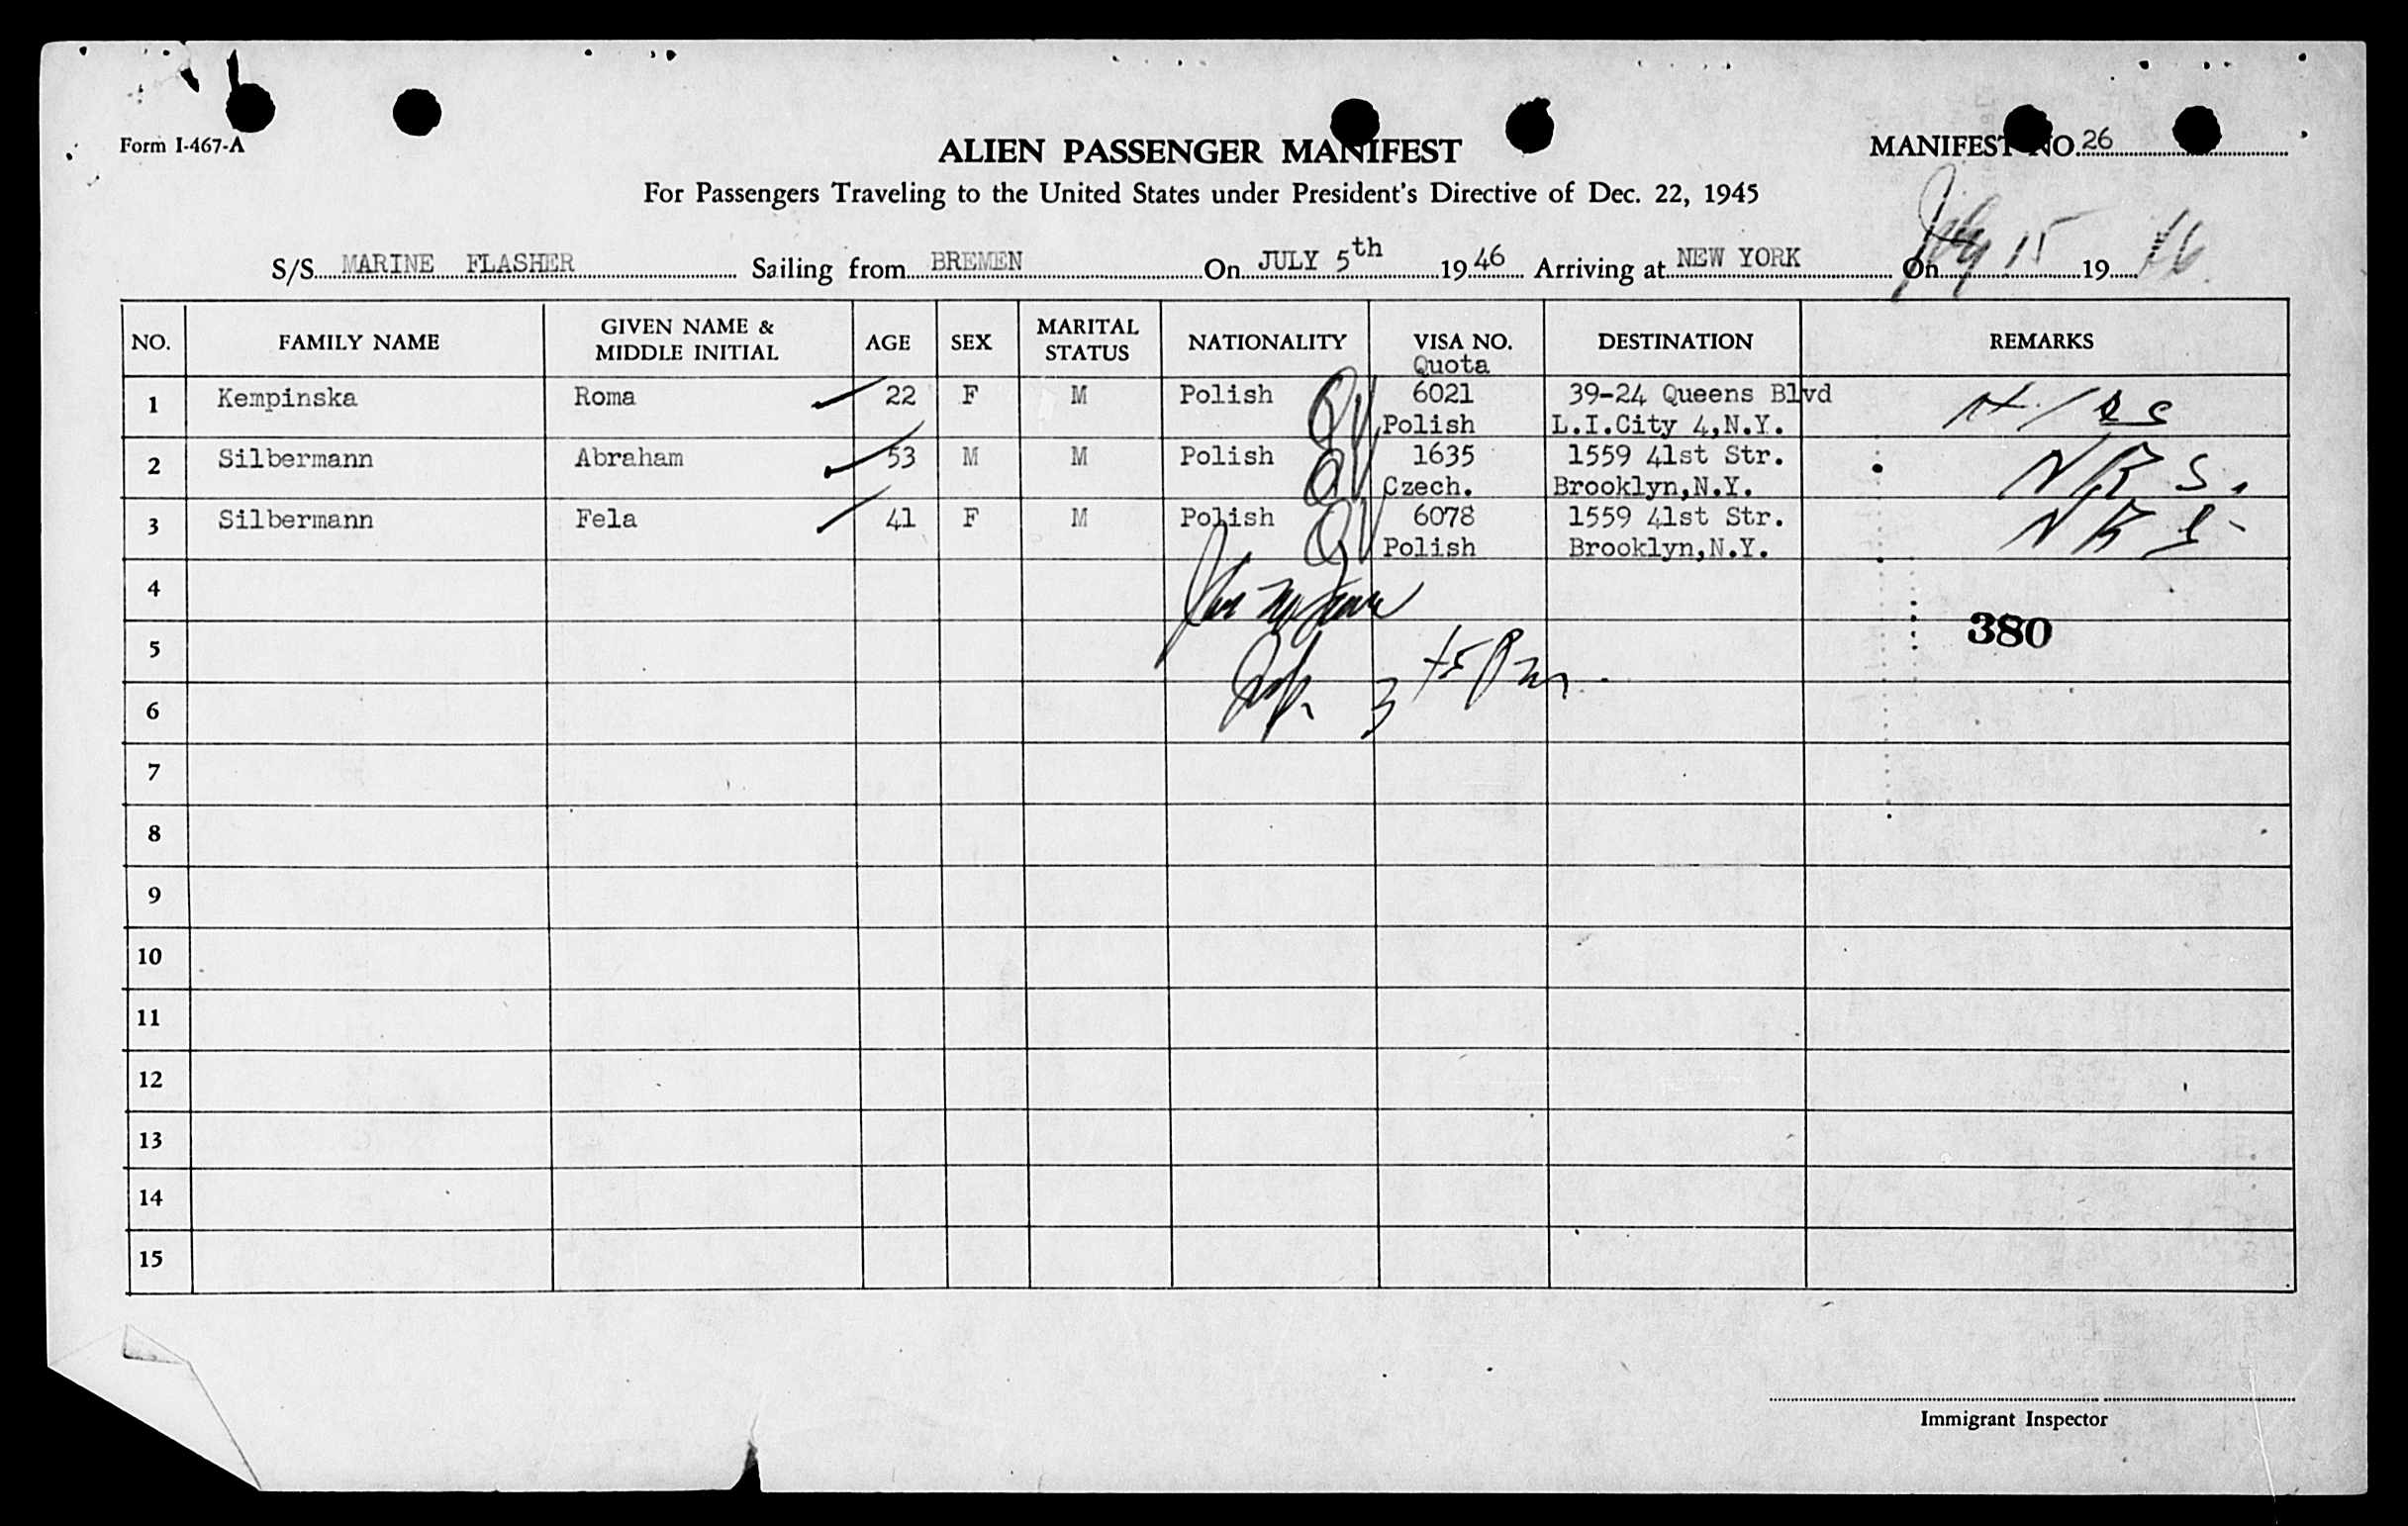 Form I-467-A
ALIEN PASSENGER MANIFEST
MANIFEST NO. 26
For Passengers Traveling to the United States under President's Directive of Dec. 22, 1945
S/S MARINE FLASHER Sailing from BREMEN On JULY 5th 1946 Arriving at NEW YORK On July 15 19 46
NO. FAMILY NAME GIVEN NAME & MIDDLE INITIAL AGE SEX MARITAL STATUS NATIONALITY VISA NO. Quota DESTINATION REMARKS
1 Kempinska Roma 22 F M Polish 6021 39-24 Queens Blvd
Polish L.I.City 4,N.Y.
2 Silbermann Abraham 53 M M Polish 1635 1559 41st Str. NRS.
Czech. Brooklyn,N.Y.
3 Silbermann Fela 41 F M Polish 6078 1559 41st Str. NRS
Polish Brooklyn,N.Y.
4
380
5
6
7
8
9
10
11
12
13
14
15
Immigrant Inspector